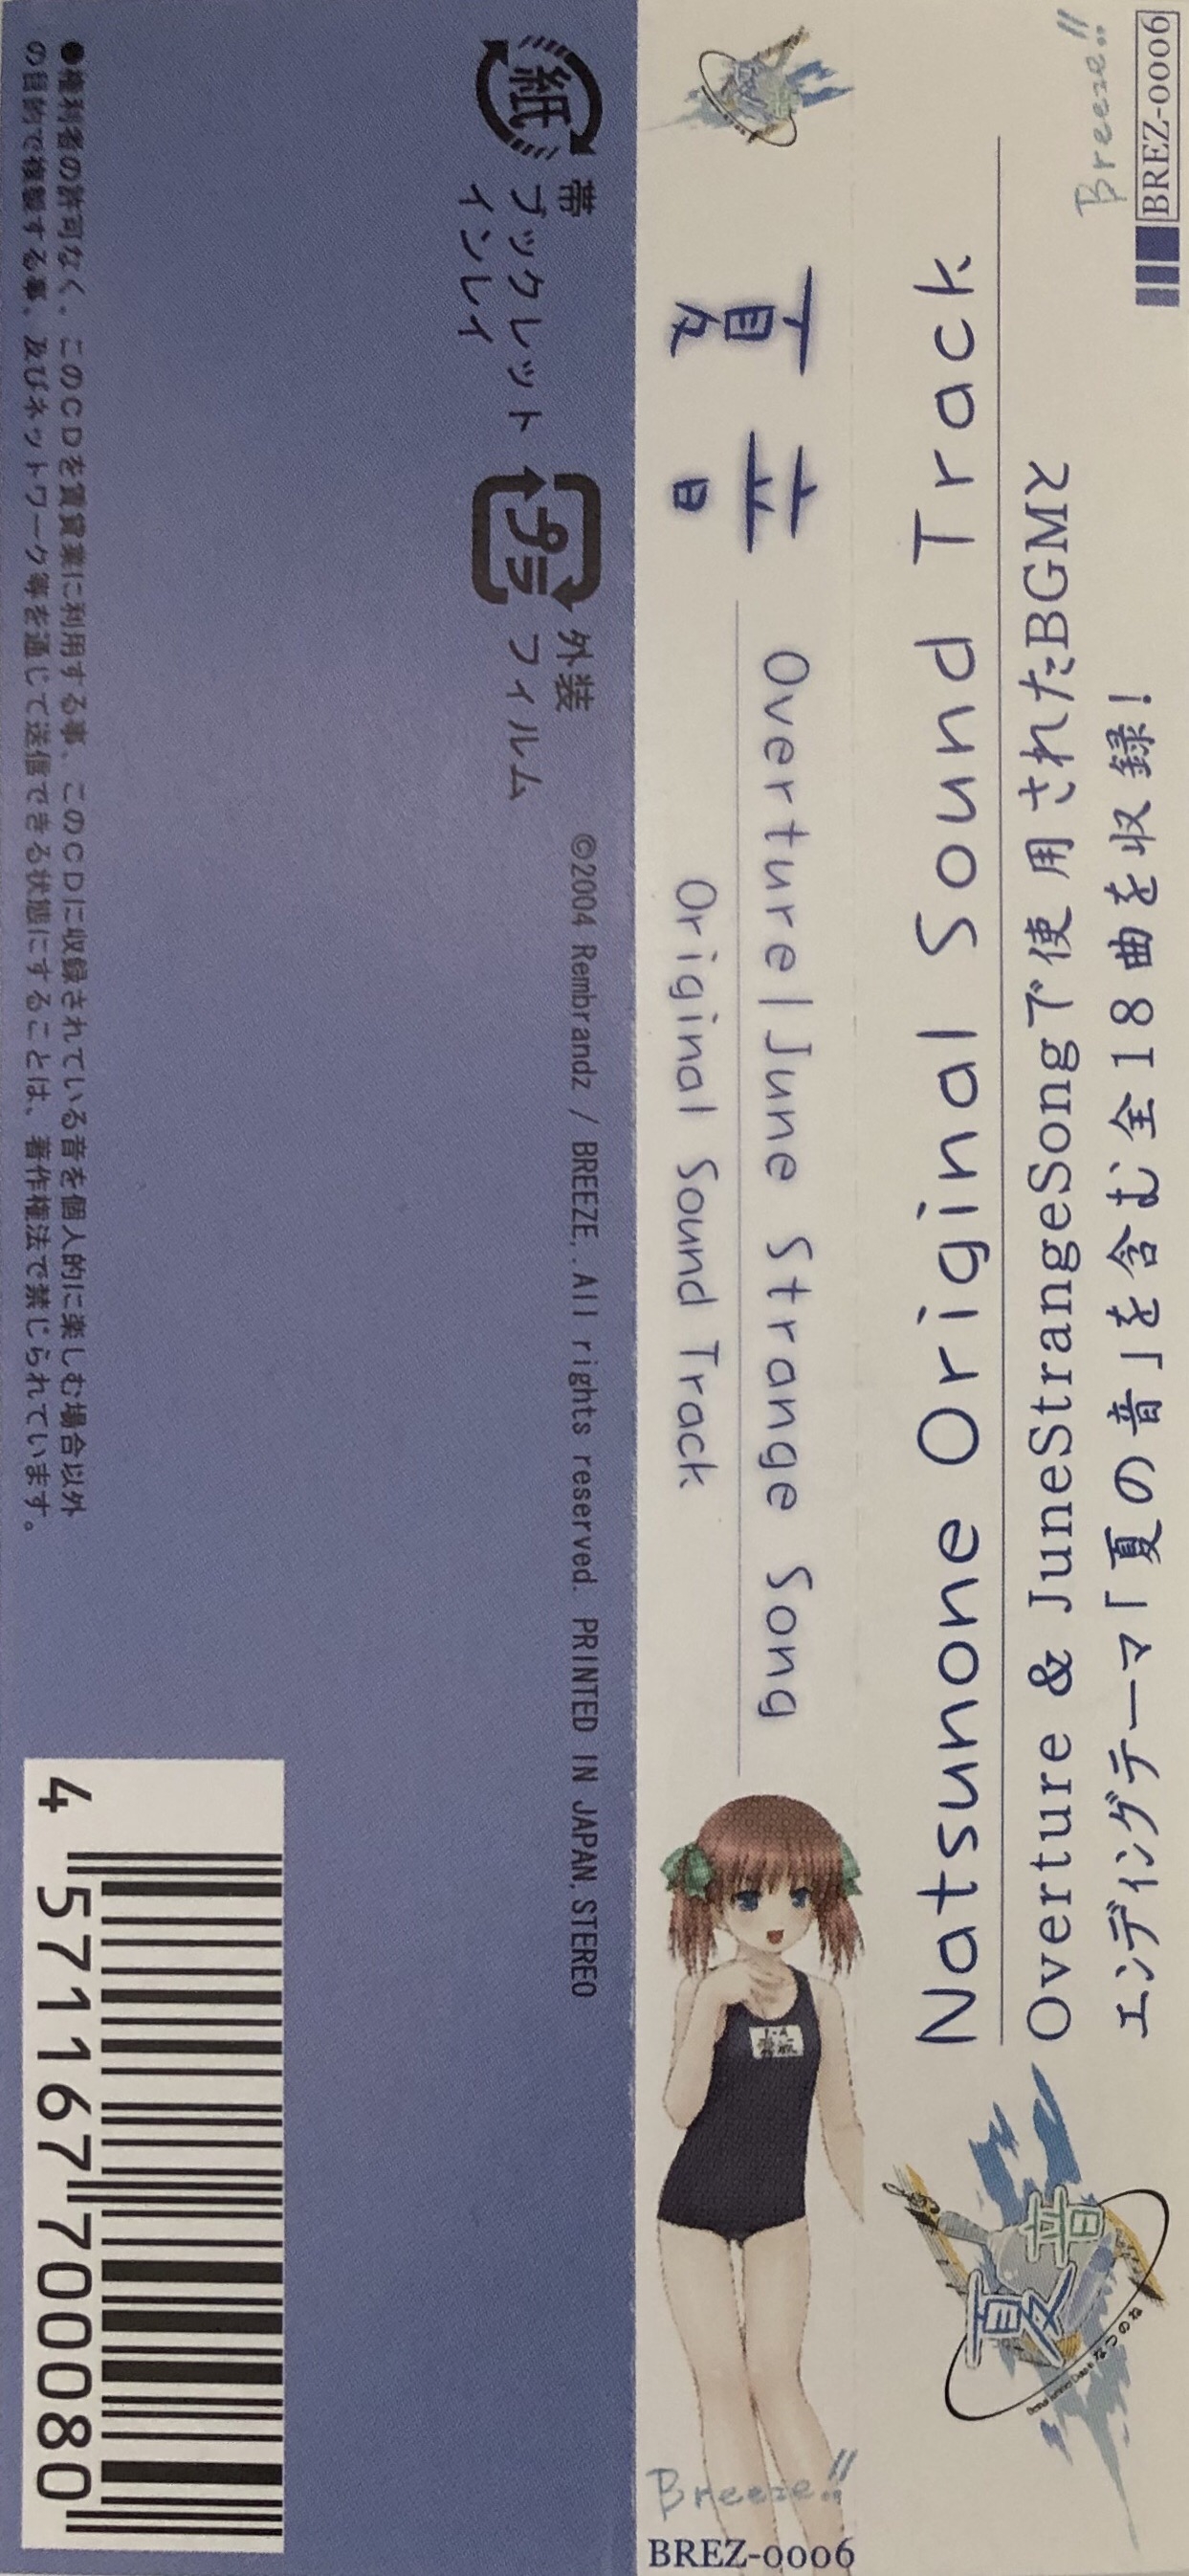 BREZ-0006
Breeze!!
Natsunone Original Sound Track
Overture & JuneStrangeSongで使用されたBGMと
エンディングテーマ「夏の音」を含む全18曲を収録！
夏音
なつのね
夏音
Overture|June Strange Song
Original Sound Track
Breeze!!
BREZ-0006
紙
帯
ブックレット
インレイ
プラ
外装
フィルム
©2004 Rembrandz / BREEZE. All rights reserved. PRINTED IN JAPAN, STEREO
●権利者の許可なく、このCDを賃貸業に利用する事、このCDに収録されている音を個人的に楽しむ場合以外
の目的で複製する事、及びネットワーク等を通じて送信できる状態にすることは、著作権法で禁じられています。
4 571167 700080